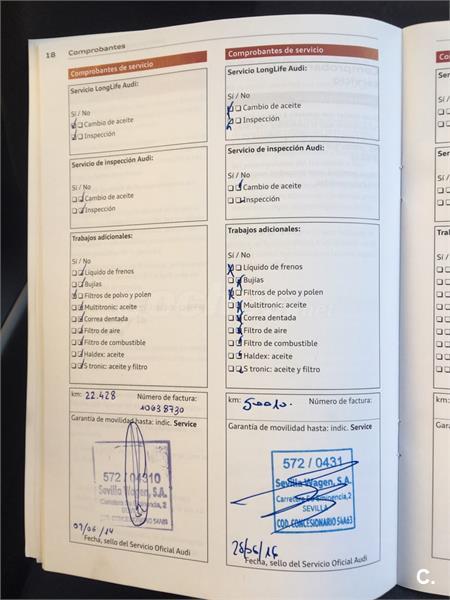 18 Comprobantes
Comprobantes de servicio
Servicio LongLife Audi:
Sí / No
Cambio de aceite
Inspección
Servicio de inspección Audi:
Sí / No
Cambio de aceite
Inspección
Trabajos adicionales:
Sí / No
Líquido de frenos
Bujías
Filtros de polvo y polen
Multitronic: aceite
Correa dentada
Filtro de aire
Filtro de combustible
Haldex: aceite
S tronic: aceite y filtro
km: 22.428 Número de factura:
10038730
Garantía de movilidad hasta: indic. Service
572 / 04310
Sevilla Wagen, S.A.
09/06/14
Fecha, sello del Servicio Oficial Audi
Comprobantes de servicio
Servicio LongLife Audi:
Sí / No
Cambio de aceite
Inspección
Servicio de inspección Audi:
Sí / No
Cambio de aceite
Inspección
Trabajos adicionales:
Sí / No
Líquido de frenos
Bujías
Filtros de polvo y polen
Multitronic: aceite
Correa dentada
Filtro de aire
Filtro de combustible
Haldex: aceite
S tronic: aceite y filtro
km: Número de factura:
Garantía de movilidad hasta: indic. Service
572 / 0431
Sevilla Wagen, S.A.
SEVILLA
COD. CONCESIONARIO 54A63
28/06/16
Fecha, sello del Servicio Oficial Audi
C.